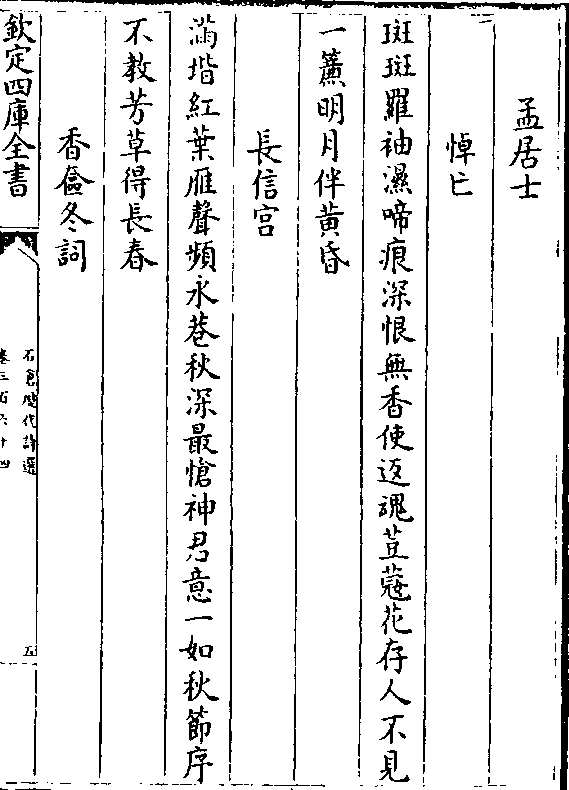 孟居士
悼亡
斑斑羅袖濕啼痕深恨無香使返魂荳蔻花存人不見
一簾明月伴黃昏
長信宮
滿堦紅葉雁聲頻永巷秋深最愴神君意一如秋節序
不教芳草得長春
香奩冬詞
欽定四庫全書
石倉歷代詩選
卷三百六十四
五